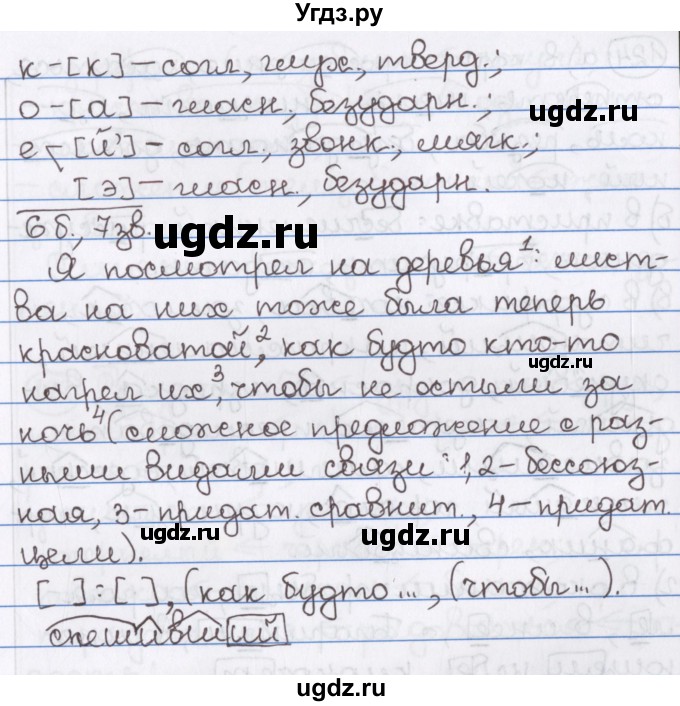 Угдз.ру
к-[к] – согл, глух, тверд.;
о-[а] – гласн, безударн.;
е-[й'] – согл, звонк., мягк.;
[э] – гласн, безударн.
6б., 7зв.
ugdz.ru
ugdz.ru
Я посмотрел на деревья¹: лист-
ва на них тоже была теперь
красноватой,² как будто кто-то
ugdz.ru
нагрел их,³ чтобы не остыли за
ночь⁴ (сложное предложение с раз-
ными видами связи: 1, 2 – бессоюз-
ная, 3 – придат. сравнит., 4 – придат.
ugdz.ru
ugdz.ru
цели).
[ ]:[ ], (как будто..., (чтобы...).
спешивший
ugdz.ru
ugdz.ru